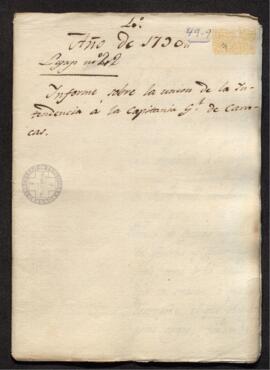 Año de 1790
Legajo nº 2
Informe sobre la union de la In-
tendencia á la Capitania Gl. de Cara-
cas.